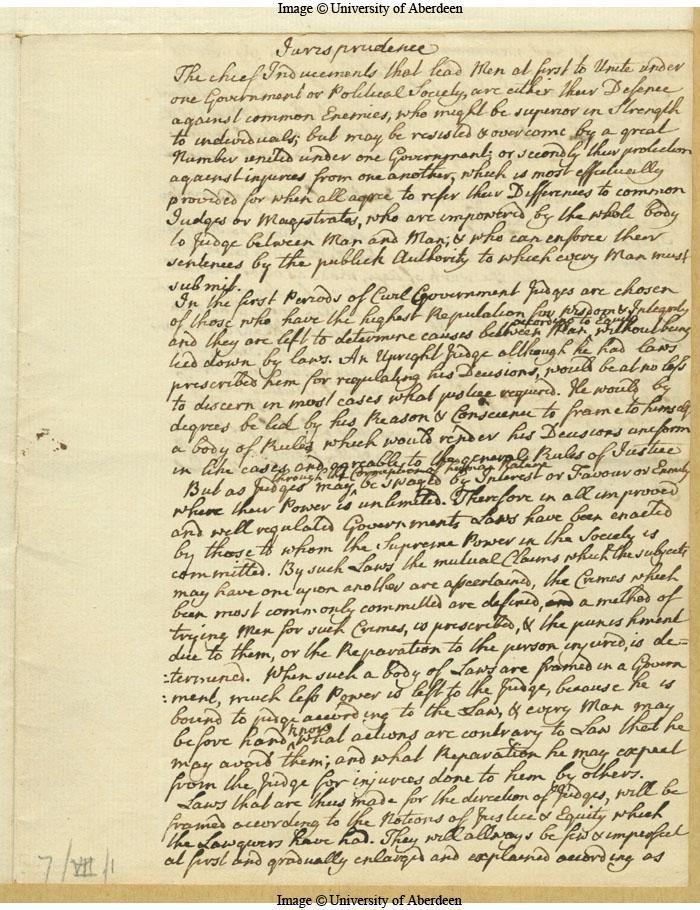 Image © University of Aberdeen
Jurisprudence
The chief Inducements that lead Men at first to Unite under
one Government or Political Society, are either their Defence
against common Enemies, who might be superior in Strength
to individuals; but may be resisted & overcome by a great
Number united under one Government; or secondly their protection
against injuries from one another, which is most effectually
provided for when all agree to refer their Differences to common
Judges or Magistrates, who are impowered by the whole body
to Judge between Man and Man; & who can enforce their
sentences by the publick Authority to which every Man must
submit.
In the first Periods of Civil Government Judges are chosen
of those who have the highest Reputation for Wisdom & Integrity
according to Equity
and they are left to determine causes between Man, without being
tied down by laws. An Upright Judge although he had laws
prescribed him for regulating his Decisions, would be at no loss
to discern in most cases what justice required. He would by
degrees be led by his Reason & Conscience to frame to himself
a body of Rules which would render his Decisions uniform
in like cases, and agreable to the general Rules of Justice
through the Corruption of human Nature
But as Judges may be swayed by Interest or Favour or Enmity
where their Power is unlimited. Therefore in all improved
and well regulated Governments Laws have been enacted
by those to whom the Supreme Power in the Society is
committed. By such Laws the mutual Claims which the subjects
may have one upon another are ascertained, the Crimes which
been most commonly committed are defined, and a method of
trying Men for such Crimes, is prescribed, & the punishment
due to them, or the Reparation to the person injured, is de=
:termined. When such a body of Laws are framed in a Govern
:ment, much less Power is left to the Judge, because he is
bound to judge according to the Law, & every Man may
know
before hand what actions are contrary to Law that he
may avoid them; and what Reparation he may expect
from the Judge for injuries done to them by others.
Laws that are thus made for the direction of Judges, will be
framed according to the Notions of Justice & Equity which
the Lawgivers have had. They will allways be few & imperfect
at first and gradually enlarged and explained according as
7/VII/1
Image © University of Aberdeen